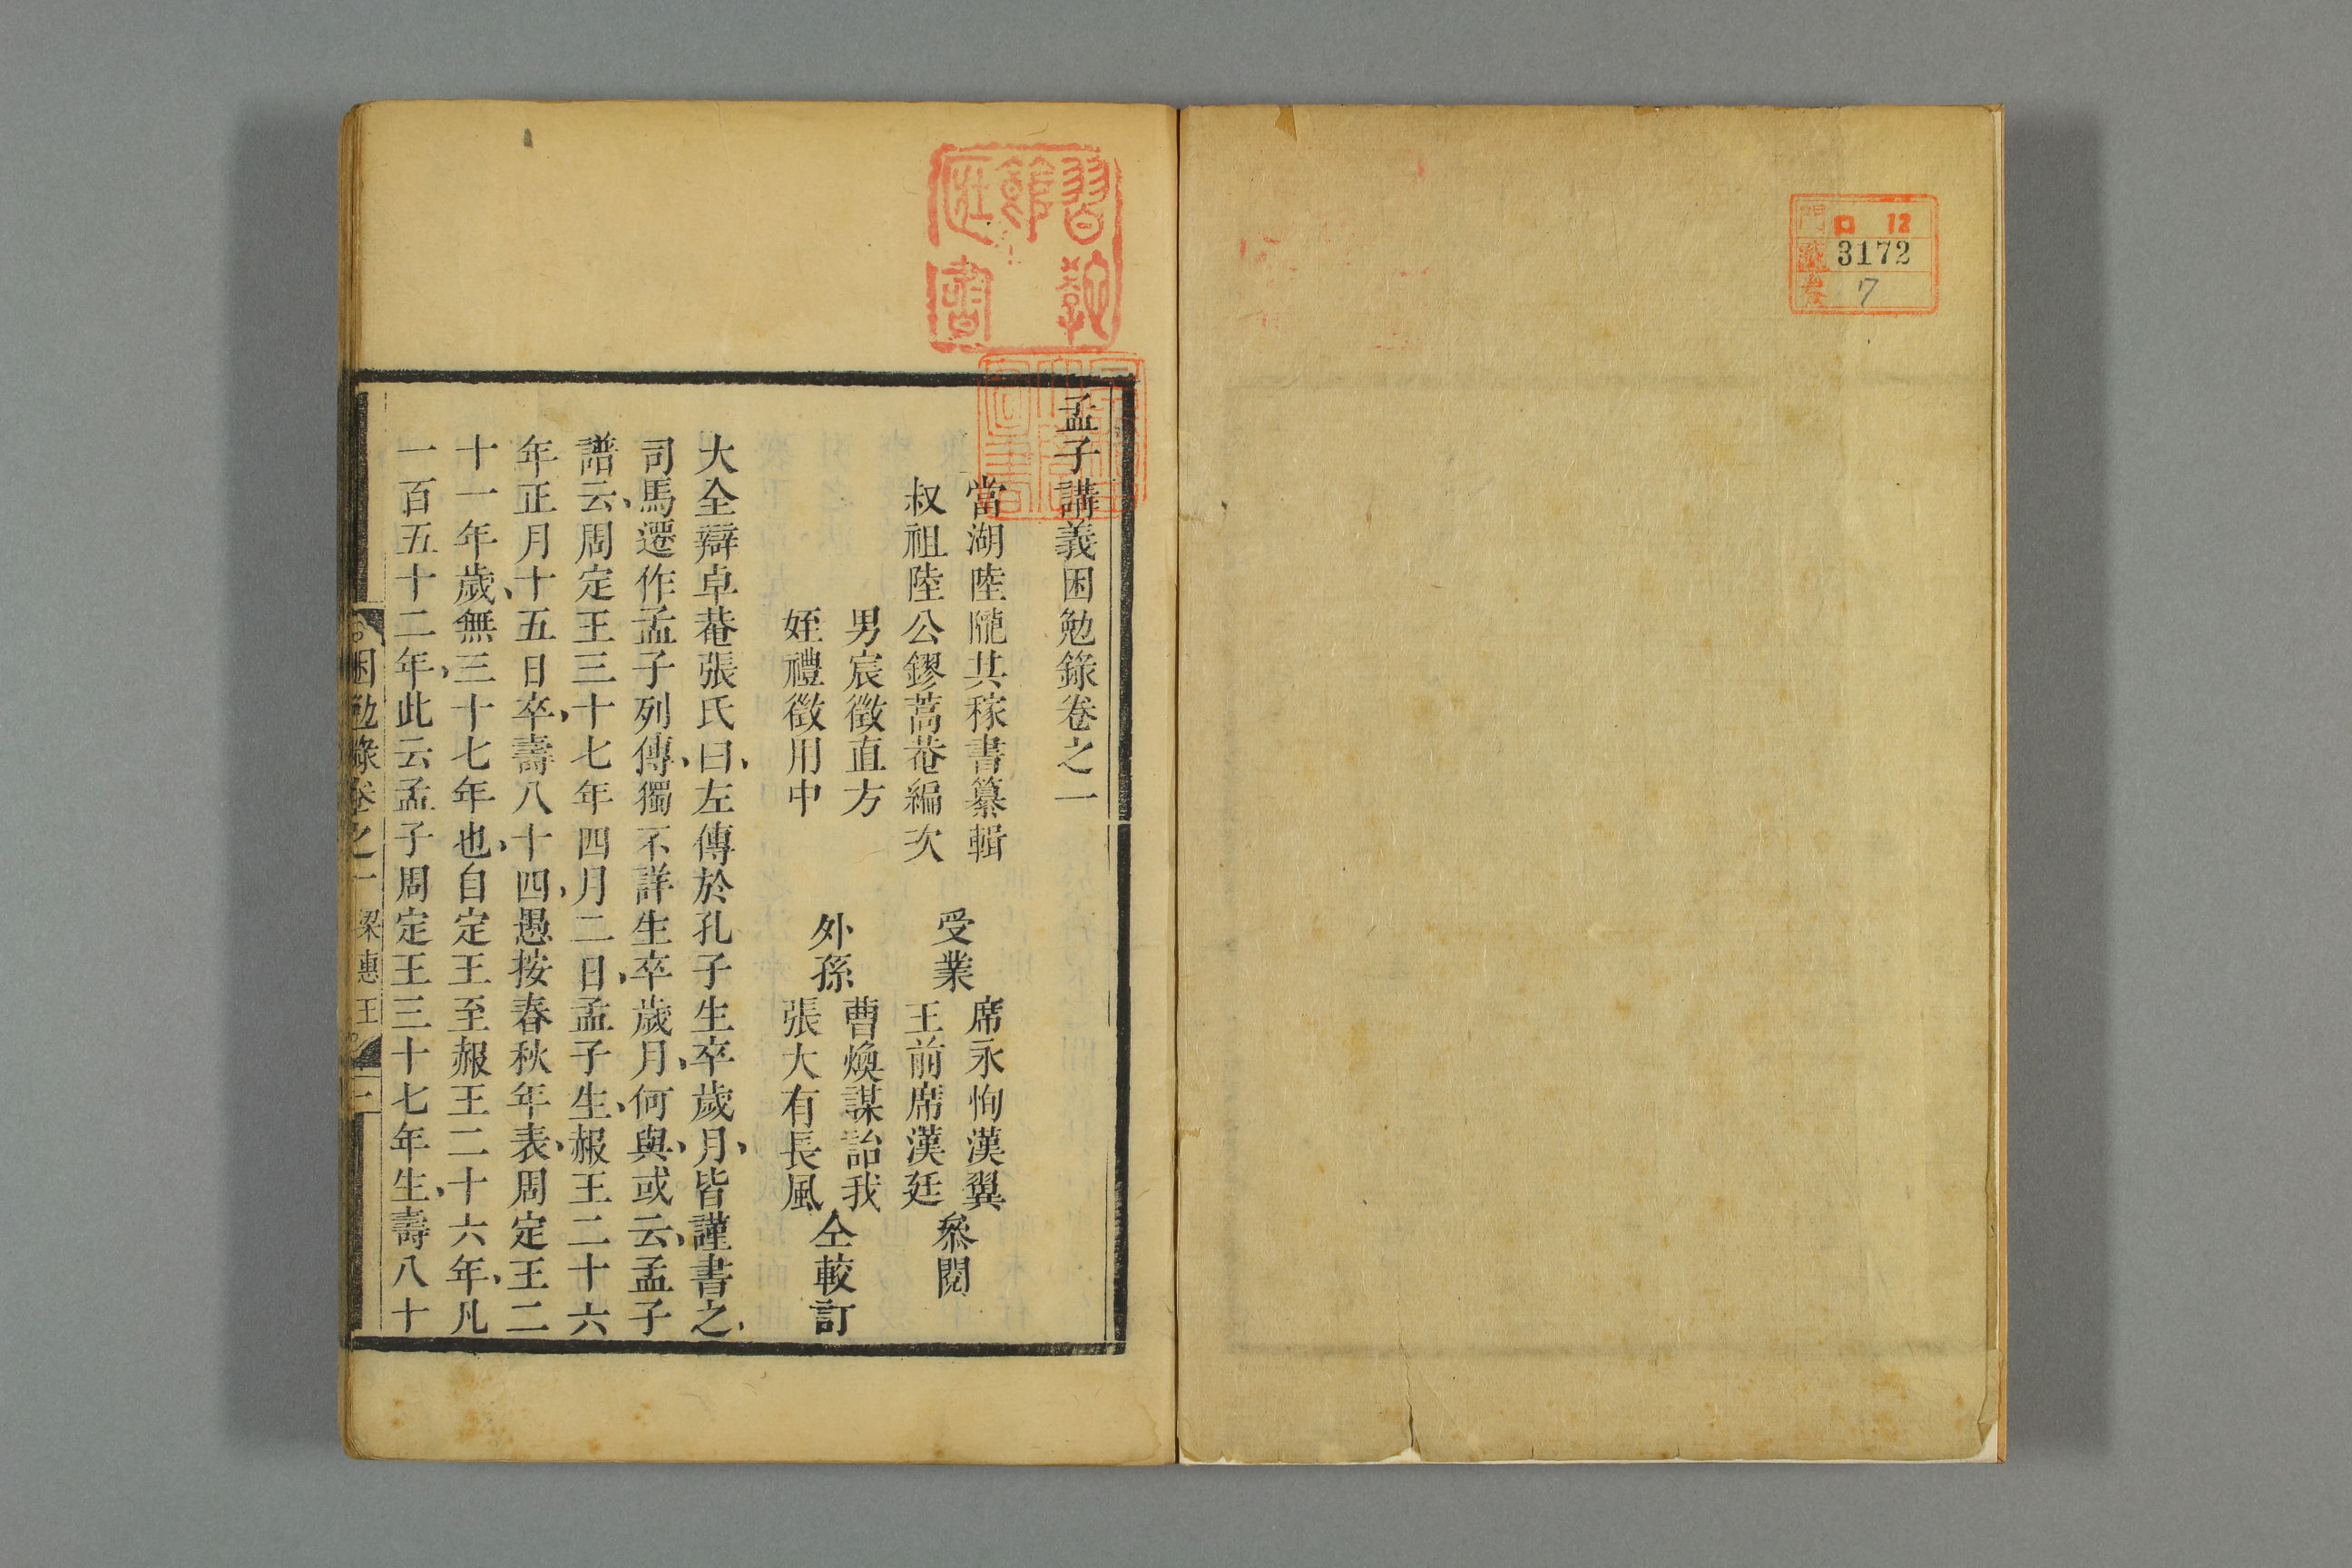 門 ロ 12
號 3172
卷 7
習説
節
書
孟子講義困勉錄卷之一
當湖陸隴其稼書纂輯
叔祖陸公鏐蒿菴編次
受業
席永恂漢翼
王前席漢廷
叅閱
男宸徵直方
姪禮徵用中
外孫
曹煥謀詒我
張大有長風
仝較訂
大全辯卓菴張氏曰、左傳於孔子生卒歲月、皆謹書之、
司馬遷作孟子列傳、獨不詳生卒歲月、何與、或云、孟子
譜云、周定王三十七年四月二日、孟子生、赧王二十六
年正月十五日卒、壽八十四、愚按春秋年表、周定王二
十一年歲、無三十七年也、自定王至赧王二十六年、凡
一百五十二年、此云孟子周定王三十七年生、壽八十
困勉錄卷之一 梁惠王 一